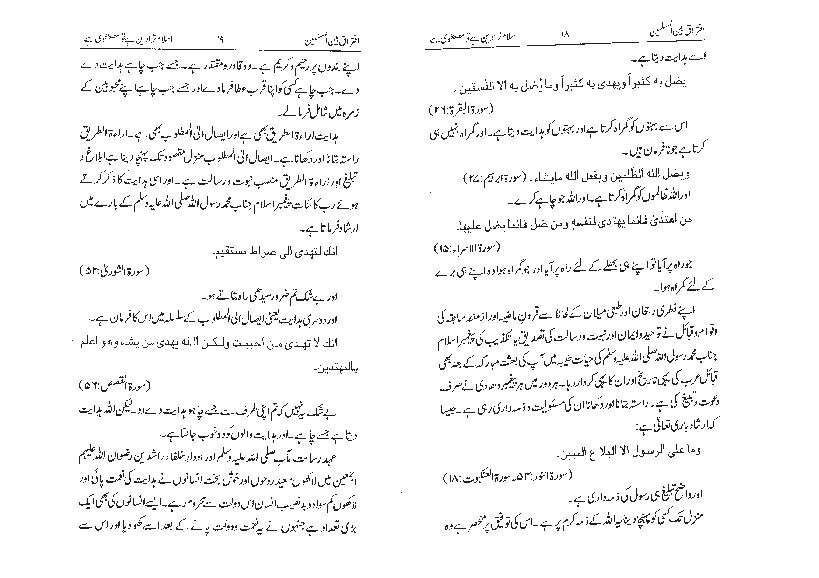 افتراق بین المسلمین ۱۸ اسلام قرار دین ہے تو مصطفوی ہے
اسے ہدایت دیتا ہے۔
يضل به كثيراً ويهدى به كثيراً وما يضل به الا الفسقين۔
(سورۃ البقرۃ:۲۶)
اس سے بہتوں کو گمراہ کرتا ہے اور بہتوں کو ہدایت دیتا ہے۔ اور گمراہ نہیں ہی
کرتا ہے جو نافرمان ہیں۔
ويضل الله الظلمين ويفعل الله مايشاء۔ (سورۃ ابراہیم:۲۷)
اور اللہ ظالموں کو گمراہ کرتا ہے۔ اور اللہ جو چاہے کرے۔
من اهتدىٰ فانما يهتدى لنفسه ومن ضل فانما يضل عليها۔
(سورۃ الاسراء:۱۵)
جو راہ پر آیا تو اپنے ہی بھلے کے لئے راہ پر آیا اور جو گمراہ ہوا وہ اپنے ہی برے
کے لئے گمراہ ہوا۔
اپنے فطری رجحان اور طبعی میلان کے لحاظ سے قرون ماضیہ اور ازمنہ سابقہ کی
اقوام وقبائل نے توحید وایمان اور نبوت ورسالت کی تصدیق یا تکذیب کی پیغمبر اسلام
جناب محمد رسول اللہ صلی اللہ علیہ وسلم کی حیات طیبہ میں آپ کی بعثت مبارکہ کے بعد بھی
قبائل عرب کی یہی تاریخ اور ان کا یہی کردار رہا۔ ہر دور میں ہر پیغمبر وہادی نے صرف
دعوت وتبلیغ کی ہے۔ راستہ بتانا اور دکھانا ان کی مسئولیت وذمہ داری رہی ہے۔ جیسا
کہ ارشاد باری تعالیٰ ہے:
وما على الرسول الا البلاغ المبين۔
(سورۃ النور:۵۴۔ سورۃ العنکبوت:۱۸)
اور واضح تبلیغ ہی رسول کی ذمہ داری ہے۔
منزل تک کسی کو پہنچا دینا یہ اللہ کے ذمہ کرم پر ہے۔ اس کی توفیق پر منحصر ہے وہ
افتراق بین المسلمین ۱۹ اسلام قرار دین ہے تو مصطفوی ہے
اپنے بندوں پر رحیم وکریم ہے۔ وہ قادر ومقتدر ہے۔ جسے چاہے ہدایت دے
دے۔ جب چاہے کسی کو اپنا قرب عطا فرمادے اور جسے چاہے اپنے محبوبین کے
زمرہ میں شامل فرمالے۔
ہدایت اراءۃ الطریق بھی ہے اور ایصال الی المطلوب بھی ہے۔ اراءۃ الطریق
راستہ بتانا اور دکھانا ہے۔ ایصال الی المطلوب منزل مقصود تک پہنچا دینا ہے ابلاغ و
تبلیغ اور اراءۃ الطریق منصب نبوت ورسالت ہے۔ اور اسی ہدایت کا ذکر کرتے
ہوئے رب کائنات پیغمبر اسلام جناب محمد رسول اللہ صلی اللہ علیہ وسلم کے بارے میں
ارشاد فرماتا ہے۔
انك لتهدى الى صراط مستقيم۔
(سورۃ الشوریٰ:۵۲)
اور بے شک تم ضرور سیدھی راہ بتاتے ہو۔
اور دوسری ہدایت یعنی ایصال الی المطلوب کے سلسلہ میں اس کا فرمان ہے۔
انك لا تهدى من احببت ولكن الله يهدى من يشاء وهو اعلم
بالمهتدين۔
(سورۃ القصص:۵۶)
بے شک یہ نہیں کہ تم اپنی طرف سے جسے چاہو ہدایت دے دو۔ لیکن اللہ ہدایت
دیتا ہے جسے چاہے۔ اور ہدایت والوں کو وہ خوب جانتا ہے۔
عہد رسالت مآب صلی اللہ علیہ وسلم اور ادوار خلفاء راشدین رضوان اللہ علیہم
اجمعین میں لاکھوں سعید روحوں اور خوش بخت انسانوں نے ہدایت کی نعمت پائی اور
لاکھوں گم سواد وبدنصیب انسان اس دولت سے محروم رہے۔ ایسے انسانوں کی بھی ایک
بڑی تعداد ہے جنہوں نے یہ نعمت ودولت پانے کے بعد اسے کھو دیا اور اس سے